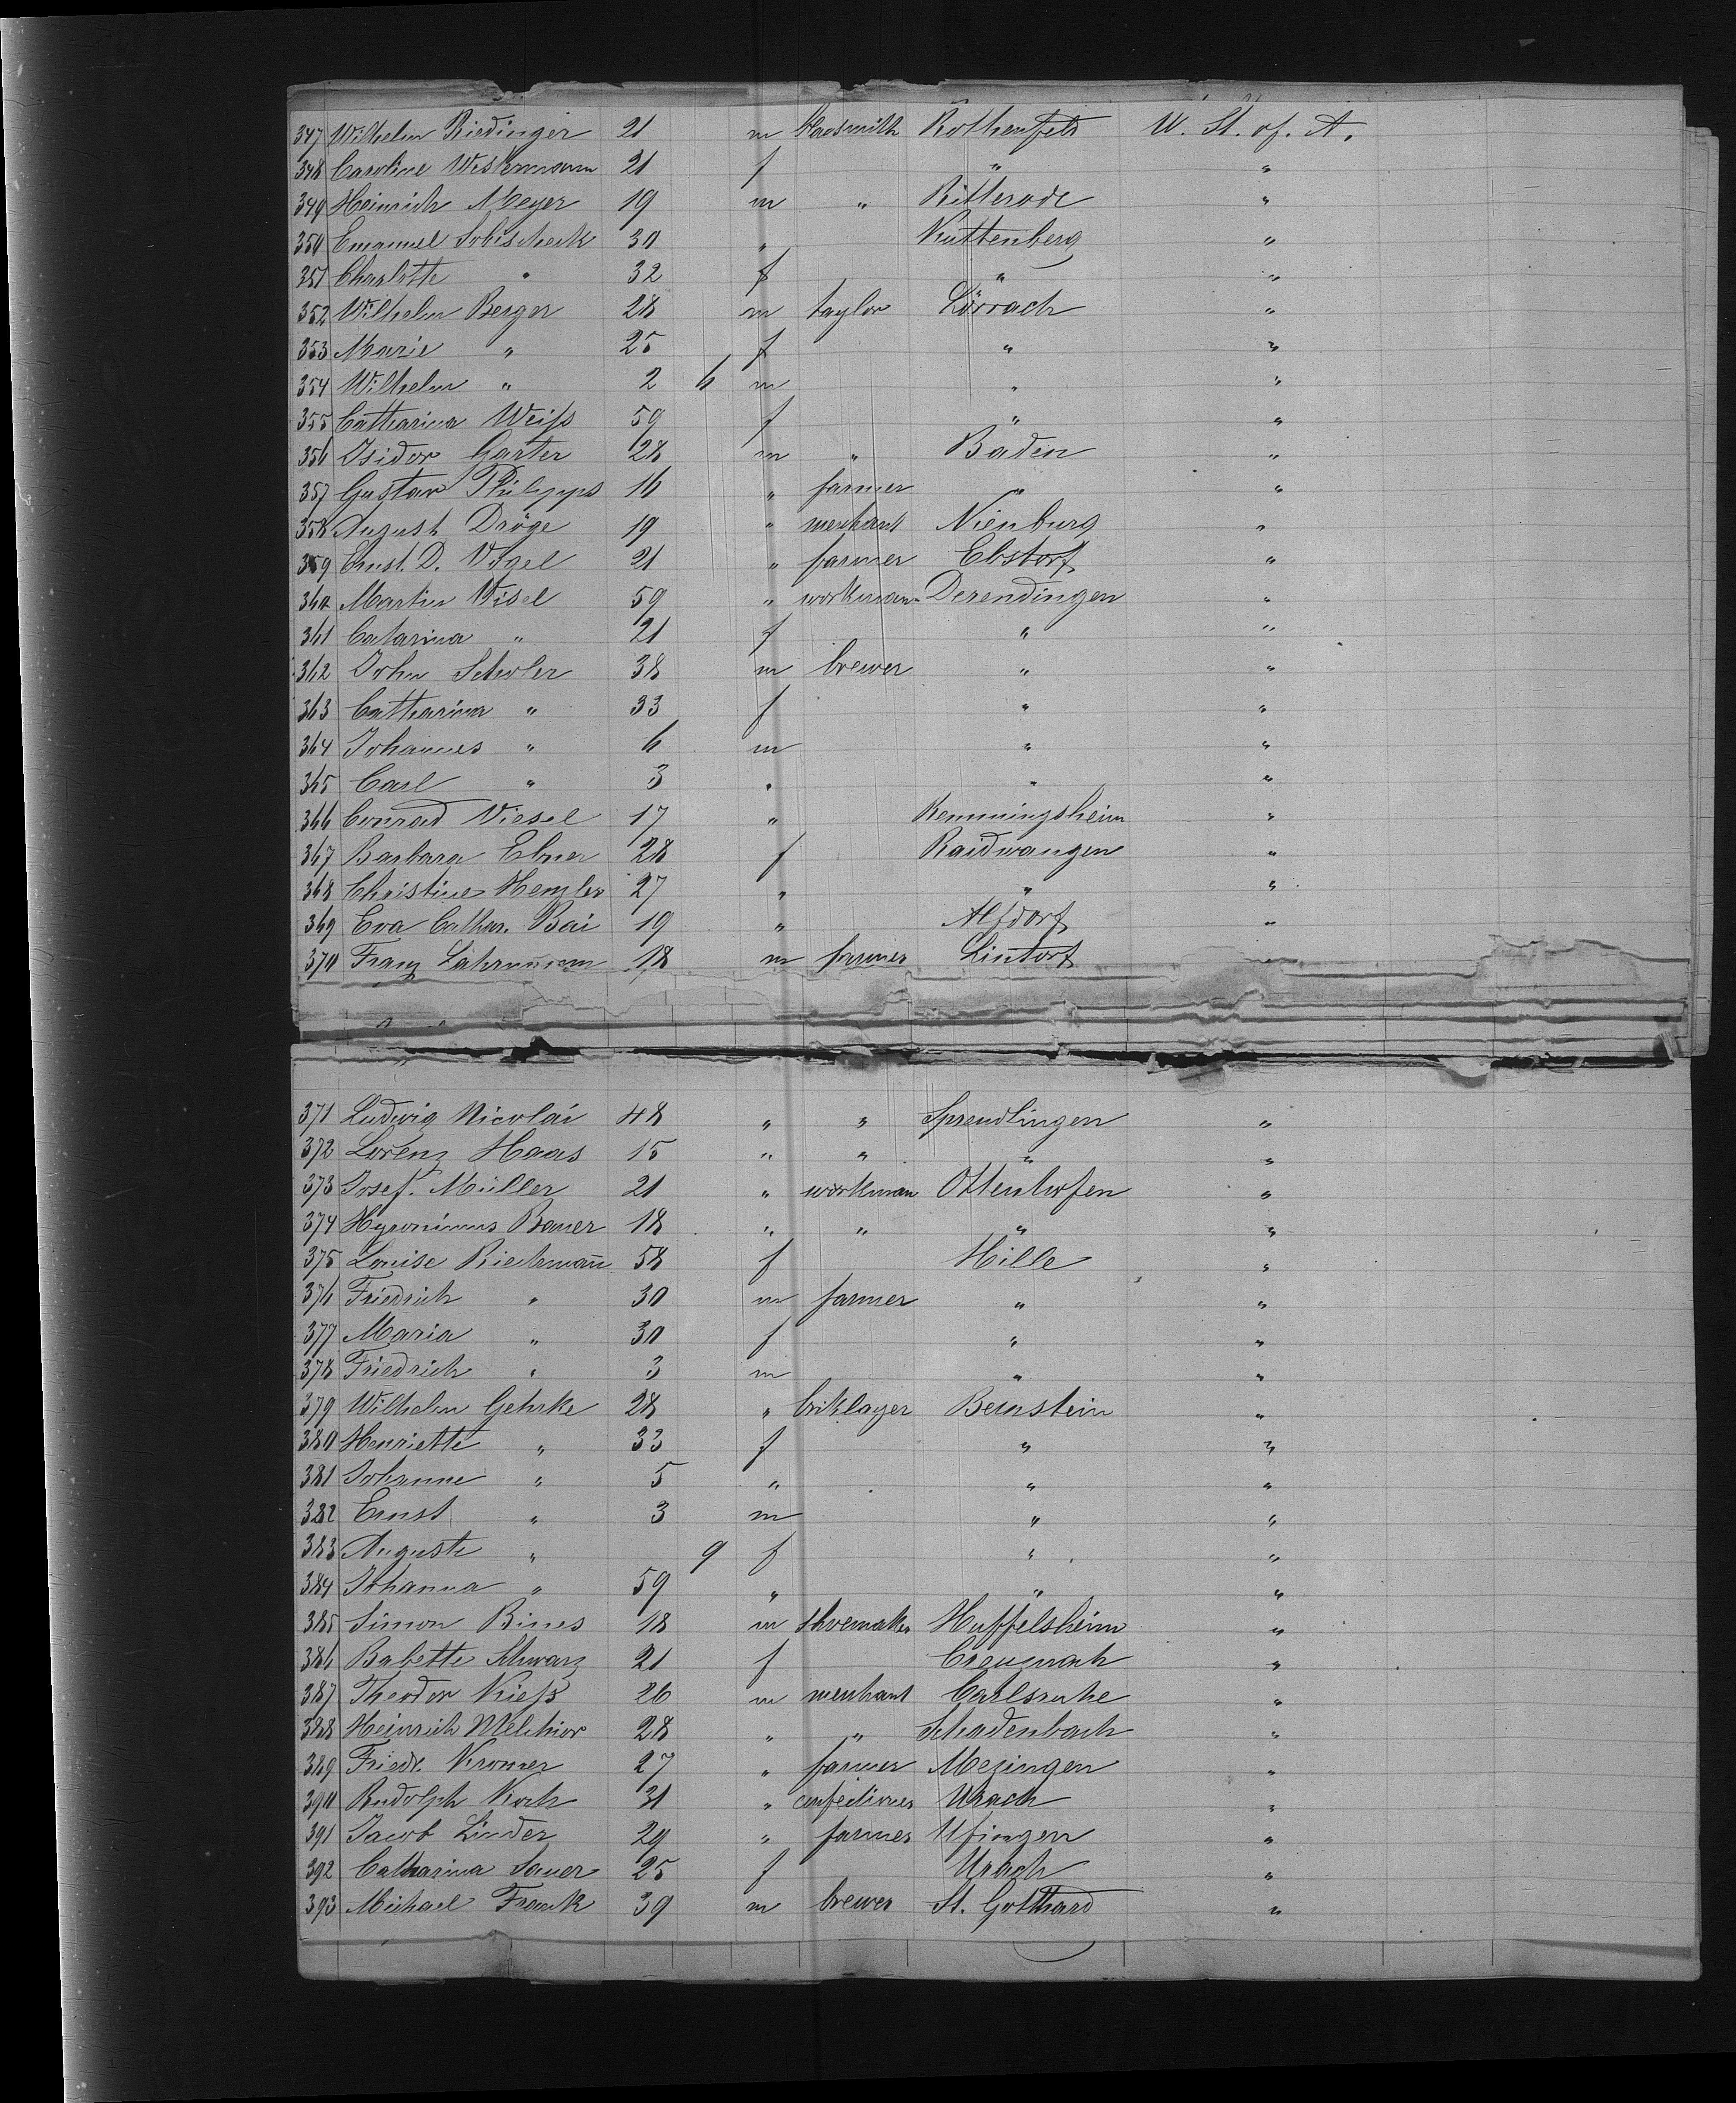 347 Wilhelm Riedinger 21 m Rothenfels U. St. of. A.
348 Caroline Westermann 21 f " "
349 Heinrich Meyer 19 m " Bitterode "
350 Emanuel 30 " Kuttenberg "
351 Charlotte " 32 f " "
352 Wilhelm Berger 28 m taylor Lörrach "
353 Marie " 25 f " "
354 Wilhelm " 2 6 m " "
355 Catharina Weiss 59 f " "
356 Isidor Garter 28 m " Baden "
357 Gustav Philipps 16 " farmer " "
358 August Dröge 19 " merchant Nienburg "
359 Ernst. D. Vogel 21 " farmer Ebstorf "
360 Martin Visel 59 " workman Derendingen "
361 Catarina " 21 f " "
362 John Scholer 38 m brewer " "
363 Catharina " 33 f " "
364 Johannes " 6 m " "
365 Carl " 3 " " "
366 Conrad Viesel 17 " Remmingsheim "
367 Barbara Ebner 28 f Raidwangen "
368 Christine Henzler 27 " " "
369 Eva Cathar. Bai 19 " Alfdorf "
370 Franz 18 m farmer Lintorf
371 Ludwig Nicolai 48 " " Sprendlingen "
372 Lorenz Haas 15 " " " "
373 Josef. Müller 21 " workman Ottenhofen "
374 Hyronimus Bauer 18 " " " "
375 Louise Riechmann̄ 58 f Hille "
376 Friedrich " 30 m farmer " "
377 Maria " 30 f " "
378 Friedrich " 3 m " "
379 Wilhelm Gehrke 28 " briklayer Bernstein "
380 Henriette " 33 f " "
381 Johanne " 5 " " "
382 Ernst " 3 m " "
383 Auguste " 9 f " "
384 Johanna " 59 " " "
385 Simon Bines 18 m shoemaker Huffelsheim "
386 Babette Schwarz 21 f Creuznach "
387 Theodor Kiess 26 m merchant Carlsruhe "
388 Heinrich Melchior 28 " " Schadenbach "
389 Friedr. Kromer 27 " farmer Mezingen "
390 Rudolph Koch 31 " confectioner Urach "
391 Jacob Linder 29 " farmer "
392 Catharina Sauer 25 f Urach "
393 Michael Frank 39 m brewer St. Gotthard "